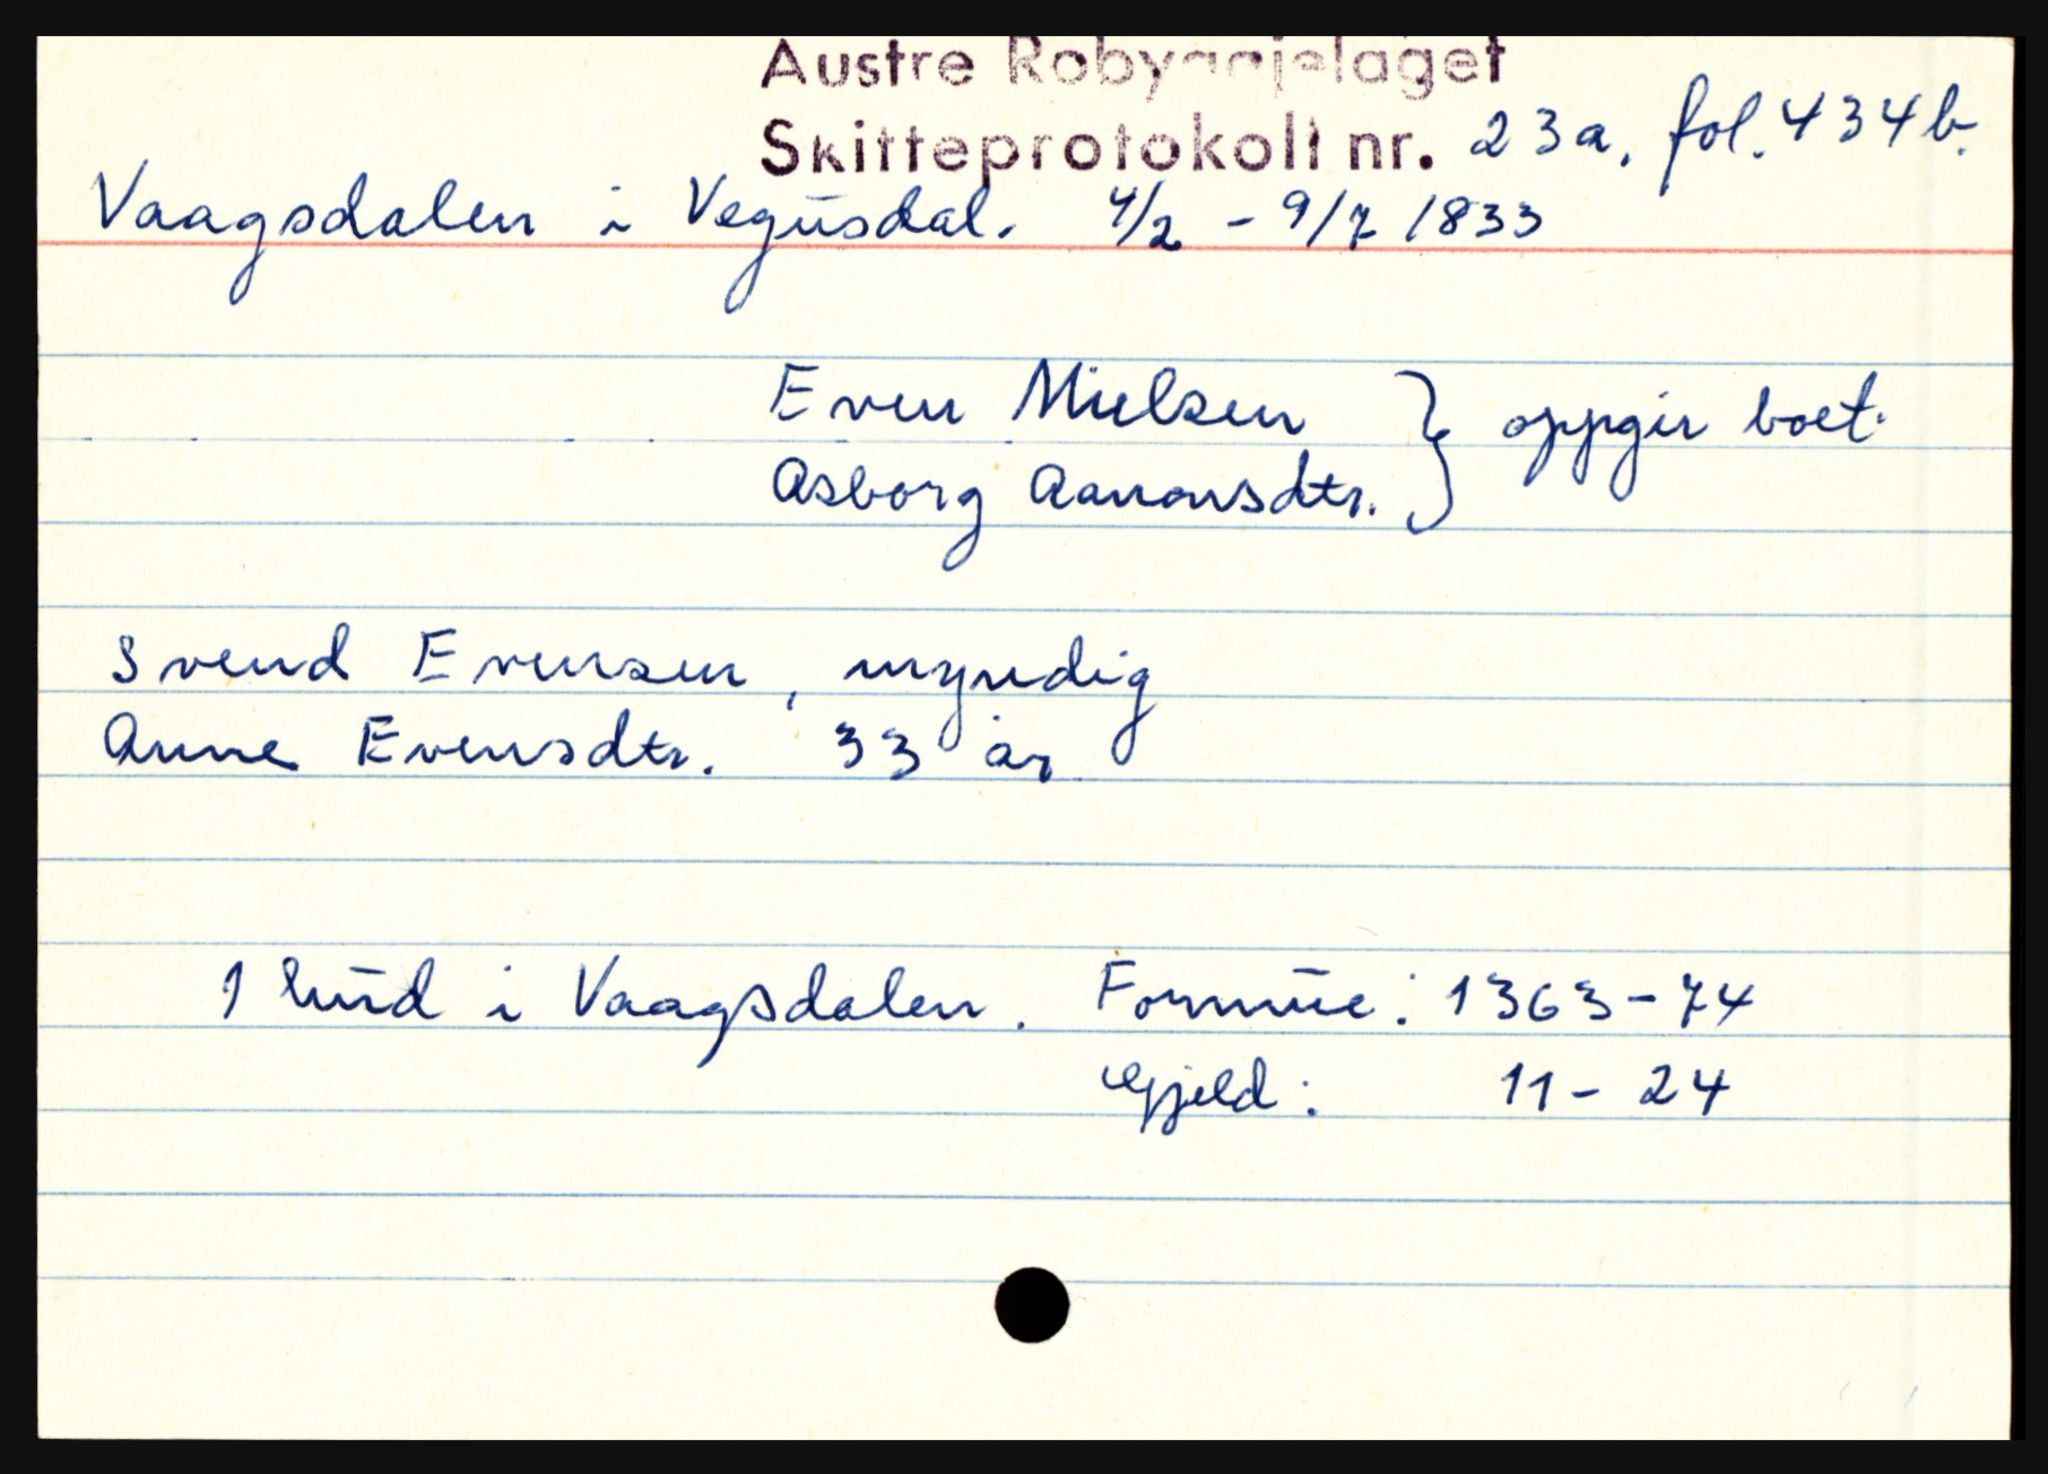 Austre Robyggjelaget
Skifteprotokoll nr. 23a, fol. 434b.
Vaagsdalen i Vegusdal. 4/2 - 9/7 1833
Even Nielsen } oppgir boet.
Asborg Aanonsdtr.
Svend Evensen, myndig
Anne Evensdtr. 33 år
1 hud i Vaagsdalen. Formue: 1363-74
Gjeld: 11-24